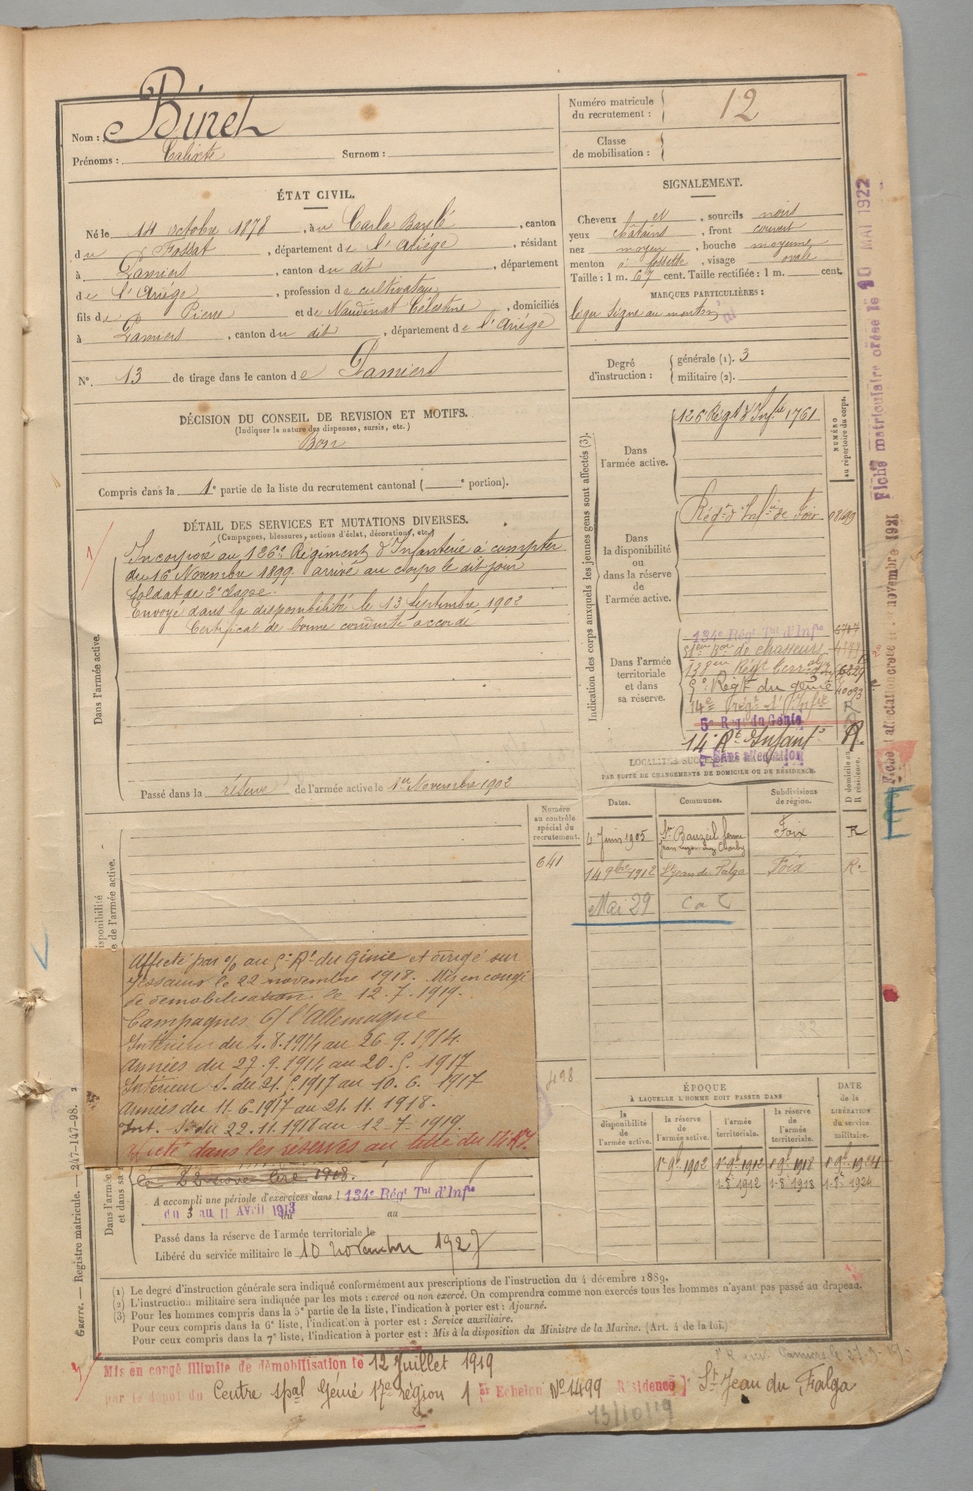 Nom : Binet
Prénoms : Calixte Surnom :
Numéro matricule du recrutement : 12
Classe de mobilisation :
ÉTAT CIVIL.
Né le 14 octobre 1878, à Carla Bayle, canton
du Fossat, département de l'Ariège, résidant
à Pamiers, canton du dit, département
de l'Ariège, profession de cultivateur
fils de Pierre et de Naudinat Célestine, domiciliés
à Pamiers, canton du dit, département de l'Ariège
N°. 13 de tirage dans le canton de Pamiers
SIGNALEMENT.
Cheveux et, sourcils noirs
yeux châtains, front couvert
nez moyen, bouche moyenne
menton à fossette, visage ovale
Taille : 1 m. 67 cent. Taille rectifiée : 1 m. cent.
MARQUES PARTICULIÈRES :
léger signe au menton
Degré d'instruction : générale (1). 3
militaire (2).
DÉCISION DU CONSEIL DE REVISION ET MOTIFS.
(Indiquer la nature des dispenses, sursis, etc.)
Bon
Compris dans la 1e partie de la liste du recrutement cantonal ( e portion).
DÉTAIL DES SERVICES ET MUTATIONS DIVERSES.
(Campagnes, blessures, actions d'éclat, décorations, etc.)
Dans l'armée active.
Incorporé au 126e Régiment d'Infanterie à compter
du 16 Novembre 1899 arrivé au corps le dit jour
soldat de 2e classe.
Envoyé dans la disponibilité le 13 Septembre 1902
Certificat de bonne conduite accordé
Passé dans la réserve de l'armée active le 1er Novembre 1902
Indication des corps auxquels les jeunes gens sont affectés (3).
NUMÉRO au répertoire du corps.
Dans l'armée active.
126 Régt d'Infie 1761
Dans la disponibilité ou dans la réserve de l'armée active.
Régt d'Infie de Foix
Dans l'armée territoriale et dans sa réserve.
134e Régt Tal d'Infie
de chasseurs
138eme Régt
5e Régt du génie
14e Régt d'Infie
5e Régt du Génie
14e Rt Infant.
Sans affectation
R
LOCALITÉS SUCCESSIVES
PAR SUITE DE CHANGEMENTS DE DOMICILE OU DE RÉSIDENCE.
Dates. Communes. Subdivisions de région. D domicile ou R résidence.
Juin 1905 St Bauzeil Foix R
14 9bre 1912 St Jean du Falga Foix R.
Mai 29 Ca
Numéro au contrôle spécial du recrutement.
641
498
Affecté par % au 5e Rt du Génie et dirigé sur
le 22 novembre 1918. Mis en congé
de démobilisation le 12.7.1919.
Campagnes c/ l'Allemagne
Intérieur du 2.8.1914 au 26.9.1914.
Armées du 27.9.1914 au 20.5.1917
Intérieur S. du 21.5.1917 au 10.6.1917
Armées du 11.6.1917 au 21.11.1918.
Int. S. du 22.11.1918 au 12-7.1919.
dans les réserves au titre du 14 RI
A accompli une période d'exercices dans l 134e Régt Tal d'Infie
du 3 au 11 Avril 1913 au
Passé dans la réserve de l'armée territoriale le
Libéré du service militaire le 10 novembre 1927
ÉPOQUE
À LAQUELLE L'HOMME DOIT PASSER DANS
la disponibilité de l'armée active. la réserve de l'armée active. l'armée territoriale. la réserve de l'armée territoriale. DATE de la LIBÉRATION du service militaire.
1er 9bre 1902 1er 9bre 1912 1er 9bre 1918 1er 9bre 1924
1-8bre 1912 1-8bre 1918 1-8bre 1924
(1) Le degré d'instruction générale sera indiqué conformément aux prescriptions de l'instruction du 4 décembre 1889.
(2) L'instruction militaire sera indiquée par les mots : exercé ou non exercé. On comprendra comme non exercés tous les hommes n'ayant pas passé au drapeau.
(3) Pour les hommes compris dans la 5e partie de la liste, l'indication à porter est : Ajourné.
Pour ceux compris dans la 6e liste, l'indication à porter est : Service auxiliaire.
Pour ceux compris dans la 7e liste, l'indication à porter est : Mis à la disposition du Ministre de la Marine. (Art. 4 de la loi.)
Mis en congé illimité de démobilisation le 12 Juillet 1919
par le dépôt du Centre spal Génie 17e région 1er Echelon No 1499 Résidence St Jean du Falga
13/10/19
Guerre. — Registre matricule. — 247-147-98.
Fiche matriculaire créée le 10 MAI 1922
Fiche d'affectation créée le novembre 1921